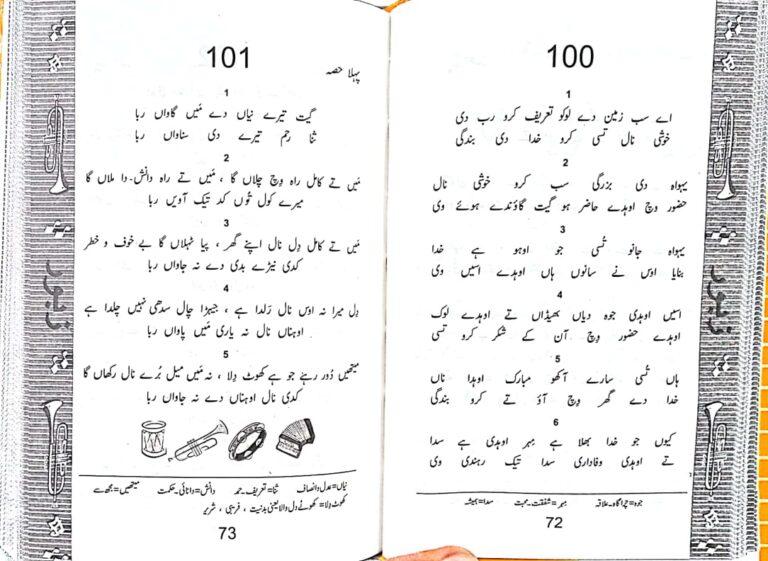 100
1
اے سب زمین دے لوکو تعریف کرو رب دی
خوشی نال تسی کرو خدا دی بندگی
2
یہواہ دی بزرگی سب کرو خوشی نال
حضور وچ اوہدے حاضر ہو گیت گاؤندے ہوئے وی
3
یہواہ جانو تُسی جو اوہو ہے خدا
بنایا اوس نے سانوں ہاں اوہدے اسیں وی
4
اسیں اوہدی جوہ دیاں بھیڈاں تے اوہدے لوک
اوہدے حضور وچ آن کے شکر کرو تسی
5
ہاں تُسی سارے آکھو مبارک اوہدا ناں
خدا دے گھر وچ آؤ تے کرو بندگی
6
کیوں جو خدا بھلا ہے مِہر اوہدی ہے سدا
تے اوہدی وفاداری سدا تیک رہندی وی
جوہ=چراگاہ۔علاقہ مِہر=شفقت۔محبت سدا=ہمیشہ
72
زبور
101
پہلا حصہ
1
گیت تیرے نیاں دے مَیں گاواں ربا
ثنا رحم تیرے دی سناواں ربا
2
مَیں تے کامل راہ وِچ چلاں گا ، مَیں تے راہ دانش۔دا ملاں گا
میرے کول تُوں کد تیک آویں ربا
3
مَیں تے کامل دِل نال اپنے گھر ، پیا ٹہلاں گا بے خوف و خطر
کدی نیڑے بدی دے نہ جاواں ربا
4
دِل میرا نہ اوس نال رَلدا ہے ، جیہڑا چال سدھی نہیں چلدا ہے
اوہناں نال نہ یاری مَیں پاواں ربا
5
میتھیں دُور رہنے جو ہے کھوٹ دِلا ، نہ مَیں میل بُرے نال رکھاں گا
کدی نال اوہناں دے نہ جاواں ربا
نیاں=عدل وانصاف ثنا=تعریف۔حمد دانش=دانائی۔حکمت میتھیں=مجھ سے
کھوٹ دِلا=کھوٹے دِل والا یعنی بدنیت ، فریبی ، شریر
73
زبور